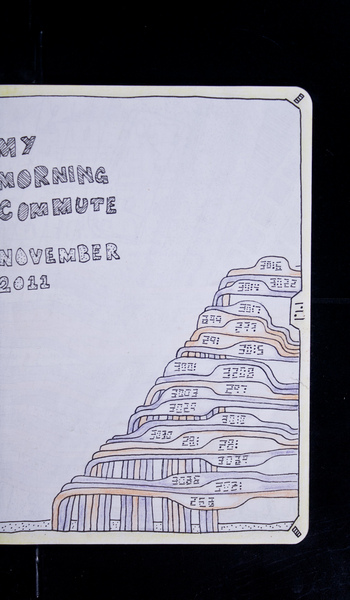 MY
MORNING
COMMUTE
NOVEMBER
2011
3016
3014 3022
3017
299
293
291
3015
3001
3208
3003 297
3029
3010
3030 281 281
3028 3021
253